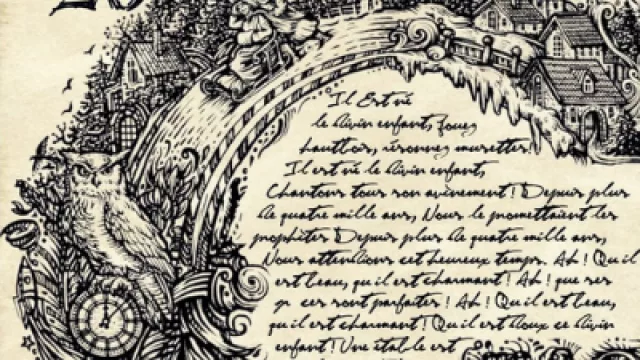 Il Est né
le divin enfant, Jouez
hautbois, résonnez musettes!
Il est né le divin enfant,
Chantons tous son avènement! Depuis plus
de quatre mille ans, Nous le promettaient les
prophètes Depuis plus de quatre mille ans,
Nous attendions cet heureux temps. Ah! Qu'il
est beau, qu'il est charmant! Ah! que ses
gr ces sont parfaites! Ah! Qu'il est beau,
qu'il est charmant! Qu'il est doux ce divin
enfant! Une étable est